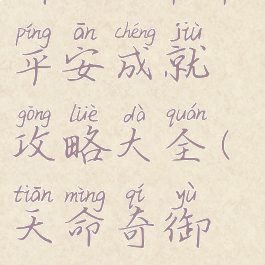 píng ān chéng jiù
平安成就
gōng lüè dà quán
攻略大全(
tiān mìng qí yù
天命奇御